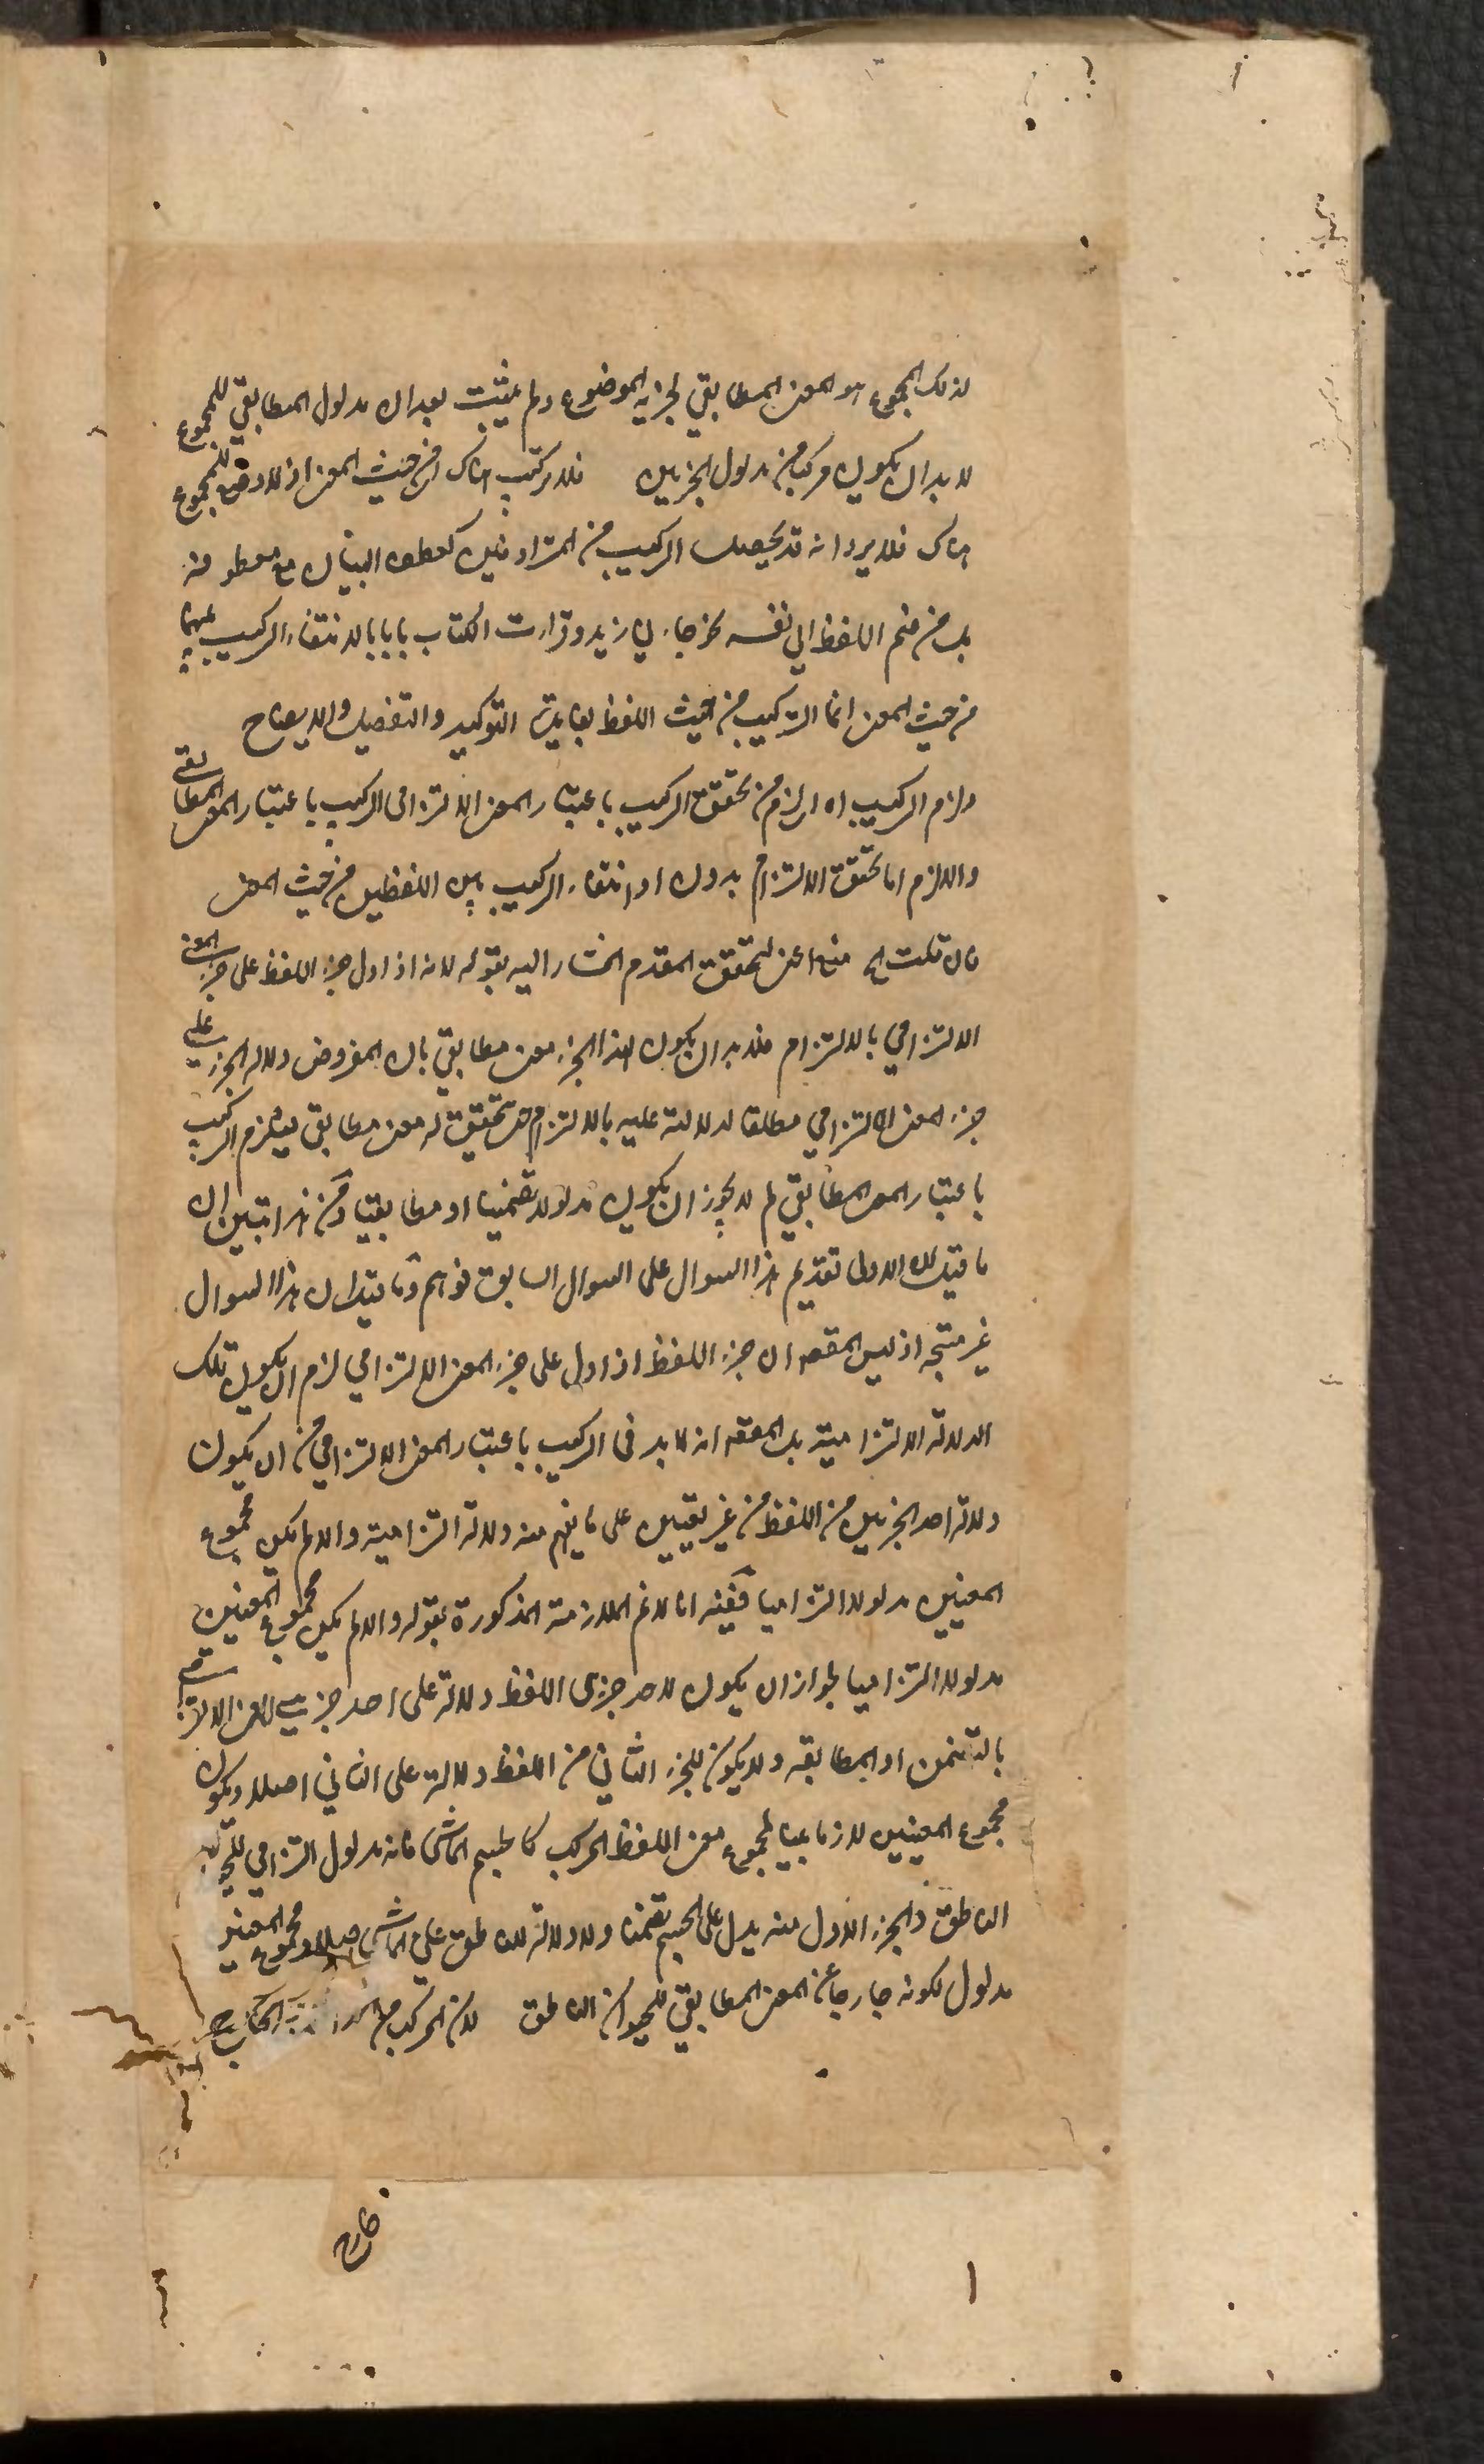 لذلك المجموع هو المعنى المطابقي لجزئيه الموضوع ولم يثبت بعد ان مدلول المطابقي للمجموع
لا بد ان يكون مركبا من مدلول الجزئين فلا تركيب هناك من حيث المعنى اذ لا وضع للمجموع
هناك فلا يرد انه قد يحصل التركيب من المترادفين كعطف البيان مع معطوفه
بل من ضم اللفظ الى نفسه نحو جاءني زيد وقرأت الكتاب بابا بابا لانتفاء التركيب عنهما
من حيث المعنى انما التركيب من حيث اللفظ بفائدة التوكيد والتفصيل والايضاح
ولزم التركيب اه اي لزم من تحقق التركيب باعتبار المعنى الالتزامي التركيب باعتبار المعنى المطابقي
واللازم اما تحقق الالتزام بدون او انتفاء التركيب بين اللفظين من حيث المعنى
فان قلت الخ منع لتحقق المقدم المشار اليه بقوله لانه اذا دل جزء اللفظ على جزء المعنى
الالتزامي بالالتزام فلا بد ان يكون لهذا الجزء معنى مطابقي بان المفروض دلالة الجزء على
جزء المعنى الالتزامي مطلقا لا دلالته عليه بالالتزام حتى تحقق له معنى مطابقي فيلزم التركيب
باعتبار المعنى المطابقي لم لا يجوز ان يكون مدلولا تضمنيا او مطابقيا ومن هذا تبين ان
ما قيل ان الاولى تقديم هذا السوال على السوال السابق توهم وما قيل ان هذا السوال
غير متجه اذ ليس المقصه ان جزء اللفظ اذا دل على جزء المعنى الالتزامي لزم ان يكون تلك
الدلالة الالتزامية بل المقصه انه لا بد فى التركيب باعتبار المعنى الالتزامي من ان يكون
دلالة احد الجزئين من اللفظ من غير تعيين على ما يفهم منه دلالة التزامية والا لم يكن مجموع
المعنيين مدلولا التزاميا ففيه انا لا نم الملازمة المذكورة بقوله والا لم يكن مجموع المعنيين
مدلولا التزاميا لجواز ان يكون لاحد جزئى اللفظ دلالة على احد جزئي المعنى الالتزامي
بالتضمن او المطابقة ولا يكون للجزء الثاني من اللفظ دلالة على الثاني اصلا ويكون
مجموع المعنيين لازما بينا لمجموع معنى اللفظ المركب كالجسم الماشى فانه مدلول التزامي للحيوان
الناطق والجزء الاول منه يدل على الجسم تضمنا ولا دلالة للناطق على الماشى اصلا ومجموع المعنيين
مدلول لكونه خارجا عن المعنى المطابقي للحيوان الناطق لان المركب من الخارج
خارج